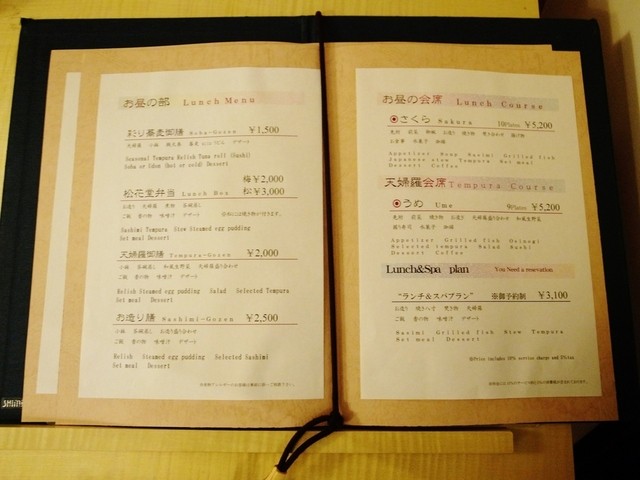 お昼の部 Lunch Menu
彩り蕎麦御膳 Soba-Gozen ¥1,500
Seasonal Tempura Relish Tuna roll (Sushi)
Soba or Udon (hot or cold) Dessert
梅¥2,000
松花堂弁当 Lunch Box 松¥3,000
お造り 天婦羅 煮物 茶碗蒸し
ご飯 香の物 味噌汁 デザート
Sashimi Tempura Stew Steamed egg pudding
Set meal Dessert
天婦羅御膳 Tempura-Gozen ¥2,000
小鉢 茶碗蒸し 和風生野菜 天婦羅盛り合わせ
ご飯 香の物 味噌汁 デザート
Relish Steamed egg pudding Salad Selected Tempura
Set meal Dessert
お造り膳 Sashimi-Gozen ¥2,500
小鉢 茶碗蒸し お造り盛り合わせ
ご飯 香の物 味噌汁 デザート
Relish Steamed egg pudding Selected Sashimi
Set meal Dessert
お昼の会席 Lunch Course
◉さくら Sakura 10Plates ¥5,200
お食事 水菓子 珈琲
Appetizer Soup Sasimi Grilled fish
Japanese stew Tempura Set meal
Dessert Coffee
天婦羅会席 Tempura Course
◉うめ Ume 9Plates ¥5,200
先附 前菜 焼き物 お造り 天婦羅盛り合わせ 和風生野菜
握り寿司 水菓子 珈琲
Appetizer Grilled fish
Selected tempura Salad Sushi
Dessert Coffee
Lunch&Spa plan You Need a resevation
“ランチ＆スパプラン” ※御予約制 ¥3,100
ご飯 香の物 味噌汁 デザート
Sasimi Grilled fish Stew Tempura
Set meal Dessert
@Price includes 10% service charge and 5%tax